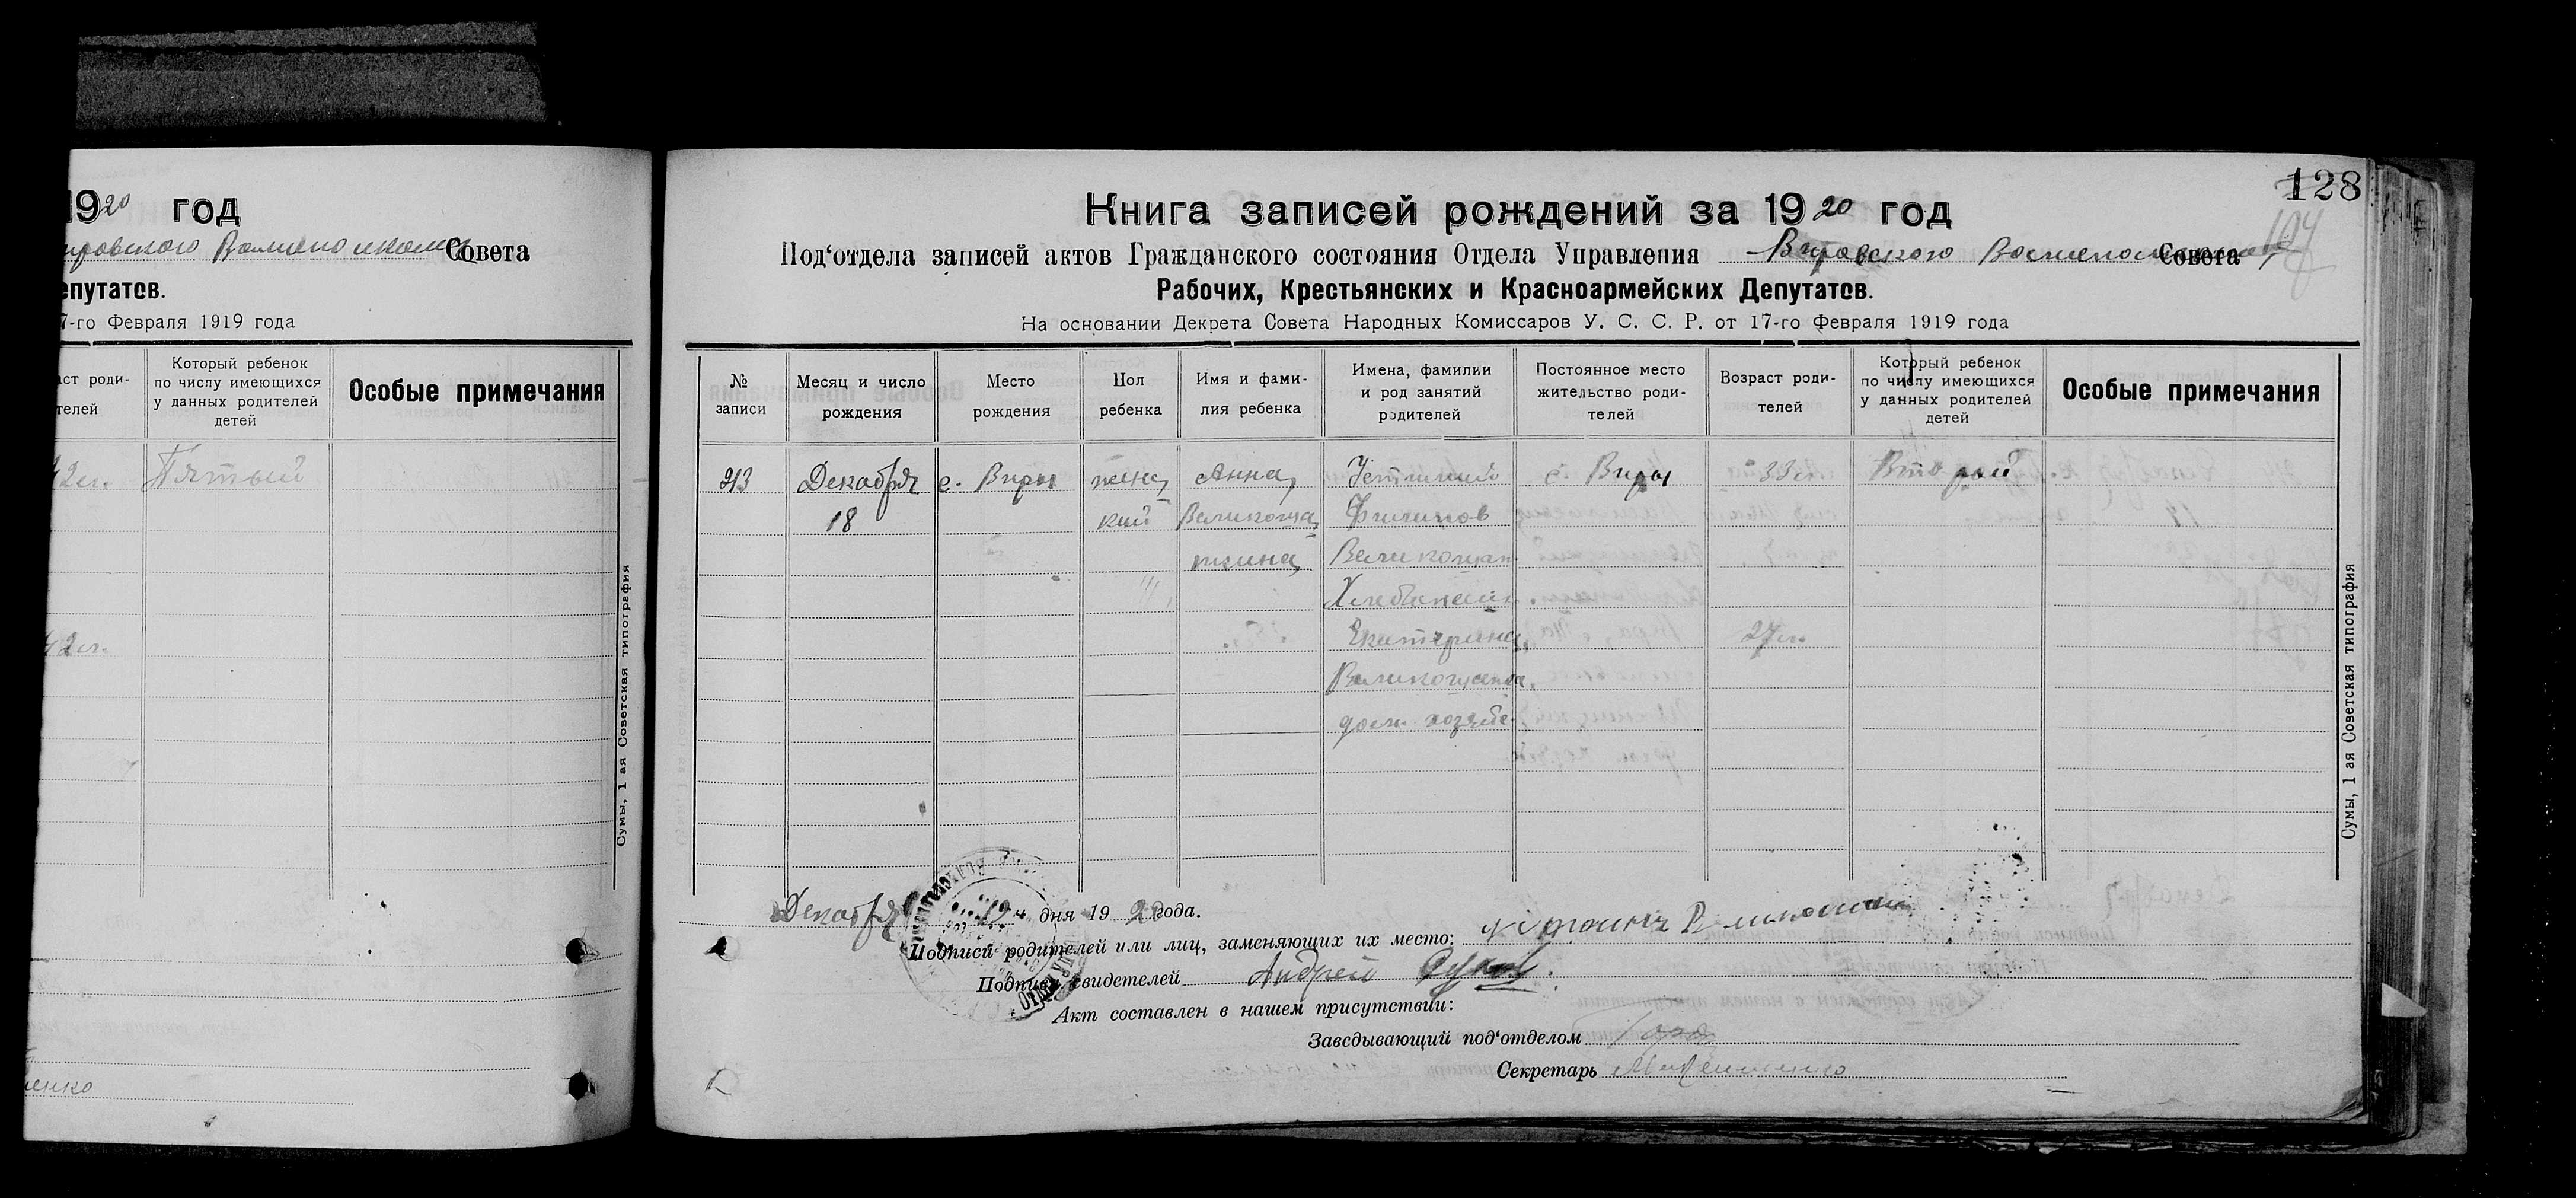 1920 год
Совета
епутатов.
7-го Февраля 1919 года
аст роди-
телей
Который ребенок
по числу имеющихся
у данных родителей
детей
Особые примечания
42 л. Пятый
42 л.
енко
Сумы, 1 ая Советская типография
128
Книга записей рождений за 1920 год
Под‘отдела записей актов Гражданского состояния Отдела Управления Вировского Совета
Рабочих, Крестьянских и Красноармейских Депутатов.
На основании Декрета Совета Народных Комиссаров У. С. С. Р. от 17-го Февраля 1919 года
№
записи
Месяц и число
рождения
Место
рождения
Пол
ребенка
Имя и фами-
лия ребенка
Имена, фамилии
и род занятий
родителей
Постоянное место
жительство роди-
телей
Возраст роди-
телей
Который ребенок
по числу имеющихся
у данных родителей
детей
Особые примечания
213 Декабря с. Виры женс Анна с. Виры 33 л. Второй
18 кий Филипов
Екатерина 27 л.
дом. хозяйс.
Сумы, 1 ая Советская типография
Декабря 19 дня 1920 года.
Подписи родителей или лиц, заменяющих их место:
Подписи свидетелей Андрей
Акт составлен в нашем присутствии:
Заведывающий под‘отделом
Секретарь